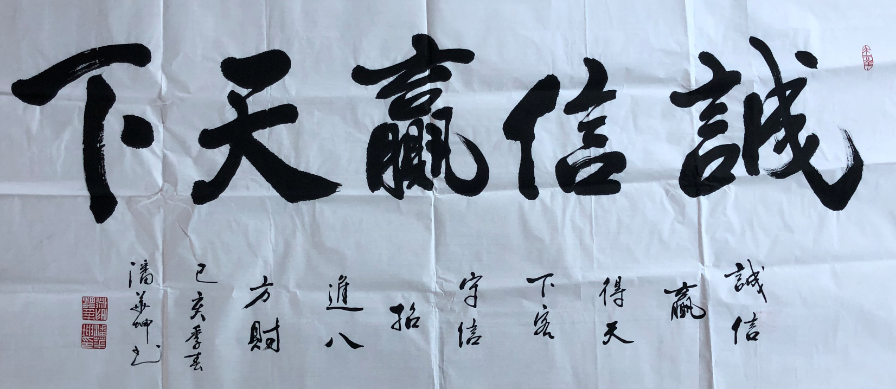 誠信贏天下
誠信
贏
得天
下客
守信
招
進八
方財
己亥季春
潘華坤书